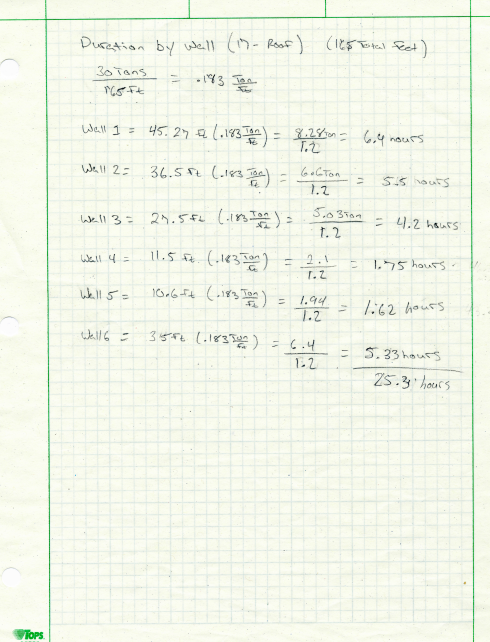 Duration by Wall (17- Roof) (165 Total Feet)
30 Tons / 165 ft = .183 Ton/ft
Wall 1 = 45.27 ft (.183 Ton/ft) = 8.28 Ton / 1.2 = 6.9 hours
Wall 2 = 36.5 ft (.183 Ton/ft) = 6.6 Ton / 1.2 = 5.5 hours
Wall 3 = 27.5 ft (.183 Ton/ft) = 5.03 Ton / 1.2 = 4.2 hours
Wall 4 = 11.5 ft (.183 Ton/ft) = 2.1 / 1.2 = 1.75 hours
Wall 5 = 10.6 ft (.183 Ton/ft) = 1.94 / 1.2 = 1.62 hours
Wall 6 = 35 ft (.183 Ton/ft) = 6.4 / 1.2 = 5.33 hours
25.3 hours
TOPS